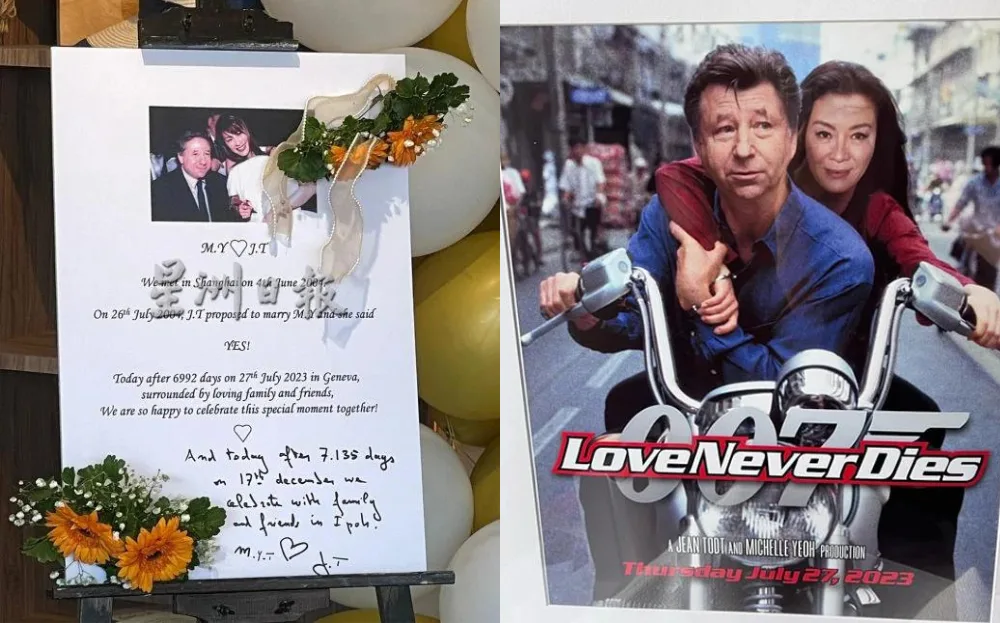 M.Y♡J.T
星洲日報
We met in Shanghai on 4th June 2004,
On 26th July 2004, J.T proposed to marry M.Y and she said
YES!
Today after 6992 days on 27th July 2023 in Geneva,
surrounded by loving family and friends,
We are so happy to celebrate this special moment together!
♡
And today after 7.135 days
on 17th december we
celebrate with family
and friends in Ipoh!
M.Y.T ♡ J.T
007
Love Never Dies
A JEAN TODT AND MICHELLE YEOH PRODUCTION
Thursday July 27, 2023